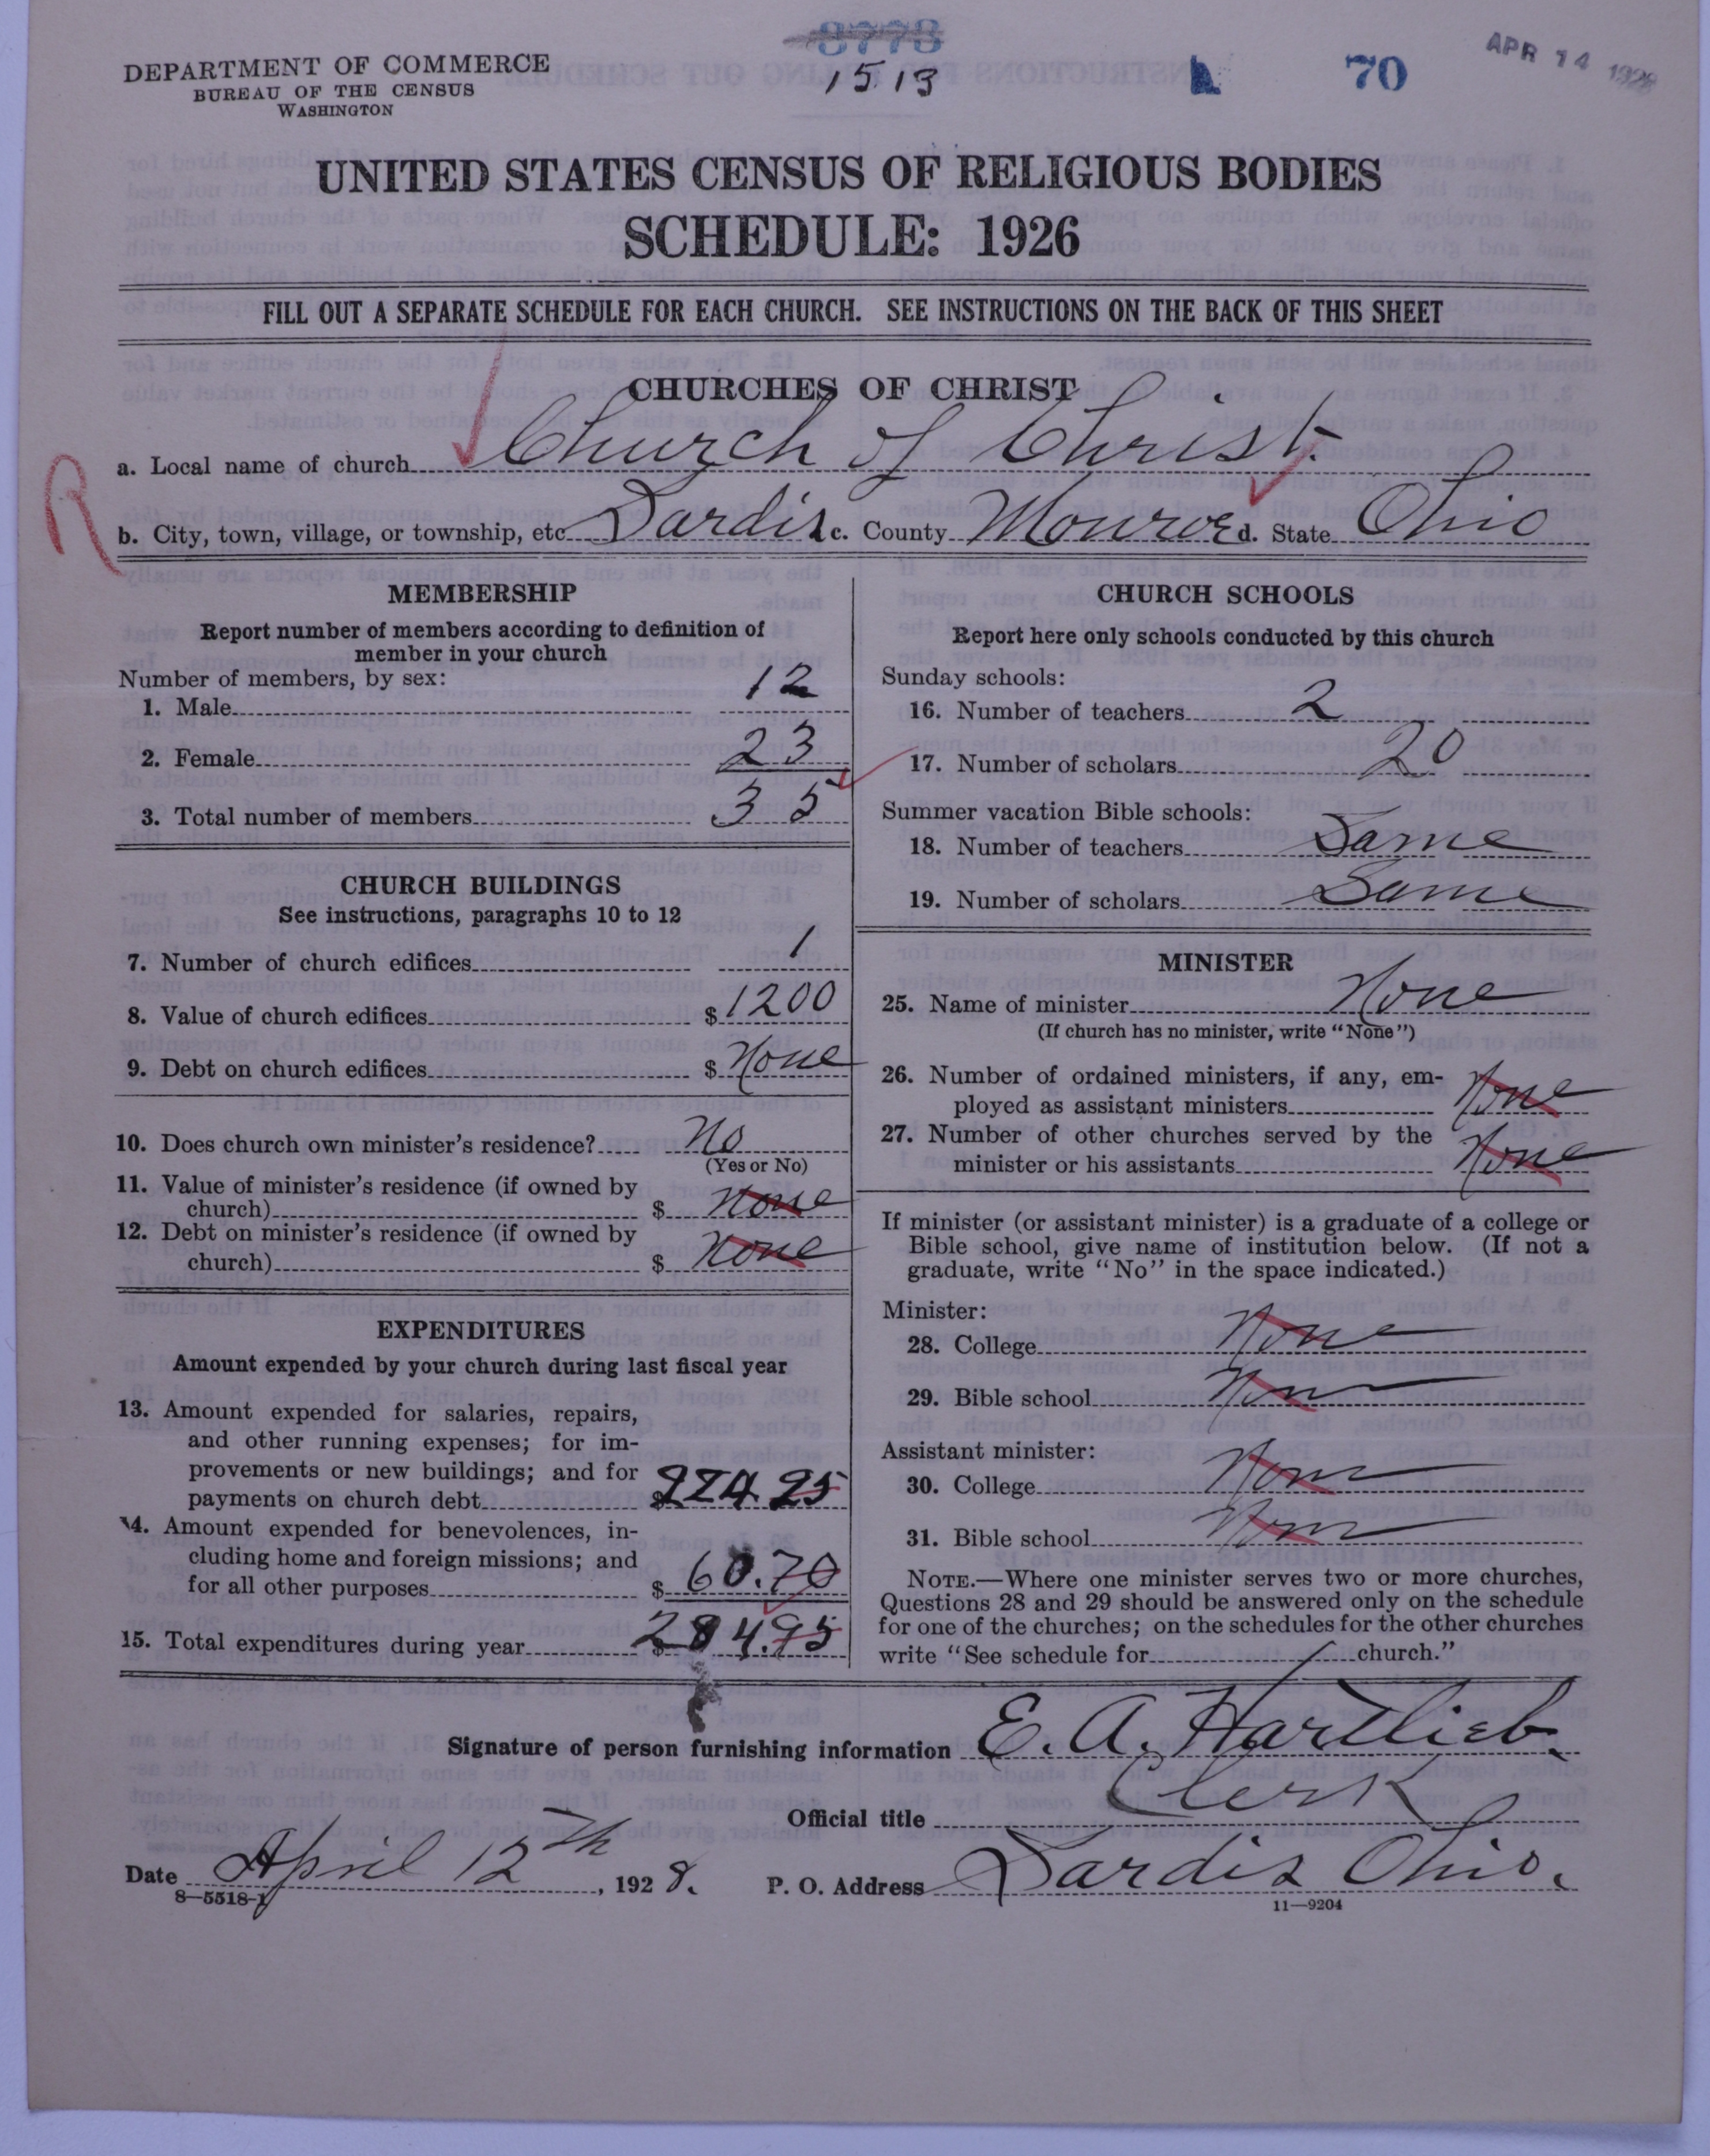 8778
1513
70
APR 14 1928
DEPARTMENT OF COMMERCE
BUREAU OF THE CENSUS
WASHINGTON
UNITED STATES CENSUS OF RELIGIOUS BODIES
SCHEDULE: 1926
FILL OUT A SEPARATE SCHEDULE FOR EACH CHURCH. SEE INSTRUCTIONS ON THE BACK OF THIS SHEET
CHURCHES OF CHRIST
R
a. Local name of church Church of Christ.
b. City, town, village, or township, etc. Sardis c. County Monroe d. State Ohio
MEMBERSHIP
Report number of members according to definition of
member in your church
Number of members, by sex:
1. Male 12
2. Female 23
3. Total number of members 35
CHURCH BUILDINGS
See instructions, paragraphs 10 to 12
7. Number of church edifices 1
8. Value of church edifices $ 1200
9. Debt on church edifices $ None
10. Does church own minister's residence? No
(Yes or No)
11. Value of minister's residence (if owned by
church) $ None
12. Debt on minister's residence (if owned by
church) $ None
EXPENDITURES
Amount expended by your church during last fiscal year
13. Amount expended for salaries, repairs,
and other running expenses; for im-
provements or new buildings; and for
payments on church debt $ 224.25
14. Amount expended for benevolences, in-
cluding home and foreign missions; and
for all other purposes $ 60.70
15. Total expenditures during year $ 284.95
CHURCH SCHOOLS
Report here only schools conducted by this church
Sunday schools:
16. Number of teachers 2
17. Number of scholars 20
Summer vacation Bible schools:
18. Number of teachers Same
19. Number of scholars Same
MINISTER
25. Name of minister None
(If church has no minister, write "None")
26. Number of ordained ministers, if any, em-
ployed as assistant ministers None
27. Number of other churches served by the
minister or his assistants None
If minister (or assistant minister) is a graduate of a college or
Bible school, give name of institution below. (If not a
graduate, write "No" in the space indicated.)
Minister:
28. College None
29. Bible school None
Assistant minister:
30. College None
31. Bible school None
NOTE.—Where one minister serves two or more churches,
Questions 28 and 29 should be answered only on the schedule
for one of the churches; on the schedules for the other churches
write "See schedule for church."
Signature of person furnishing information E. A. Hartlieb.
Official title Clerk
Date April 12th, 1928. P. O. Address Sardis Ohio.
8—5518-1
11—9204